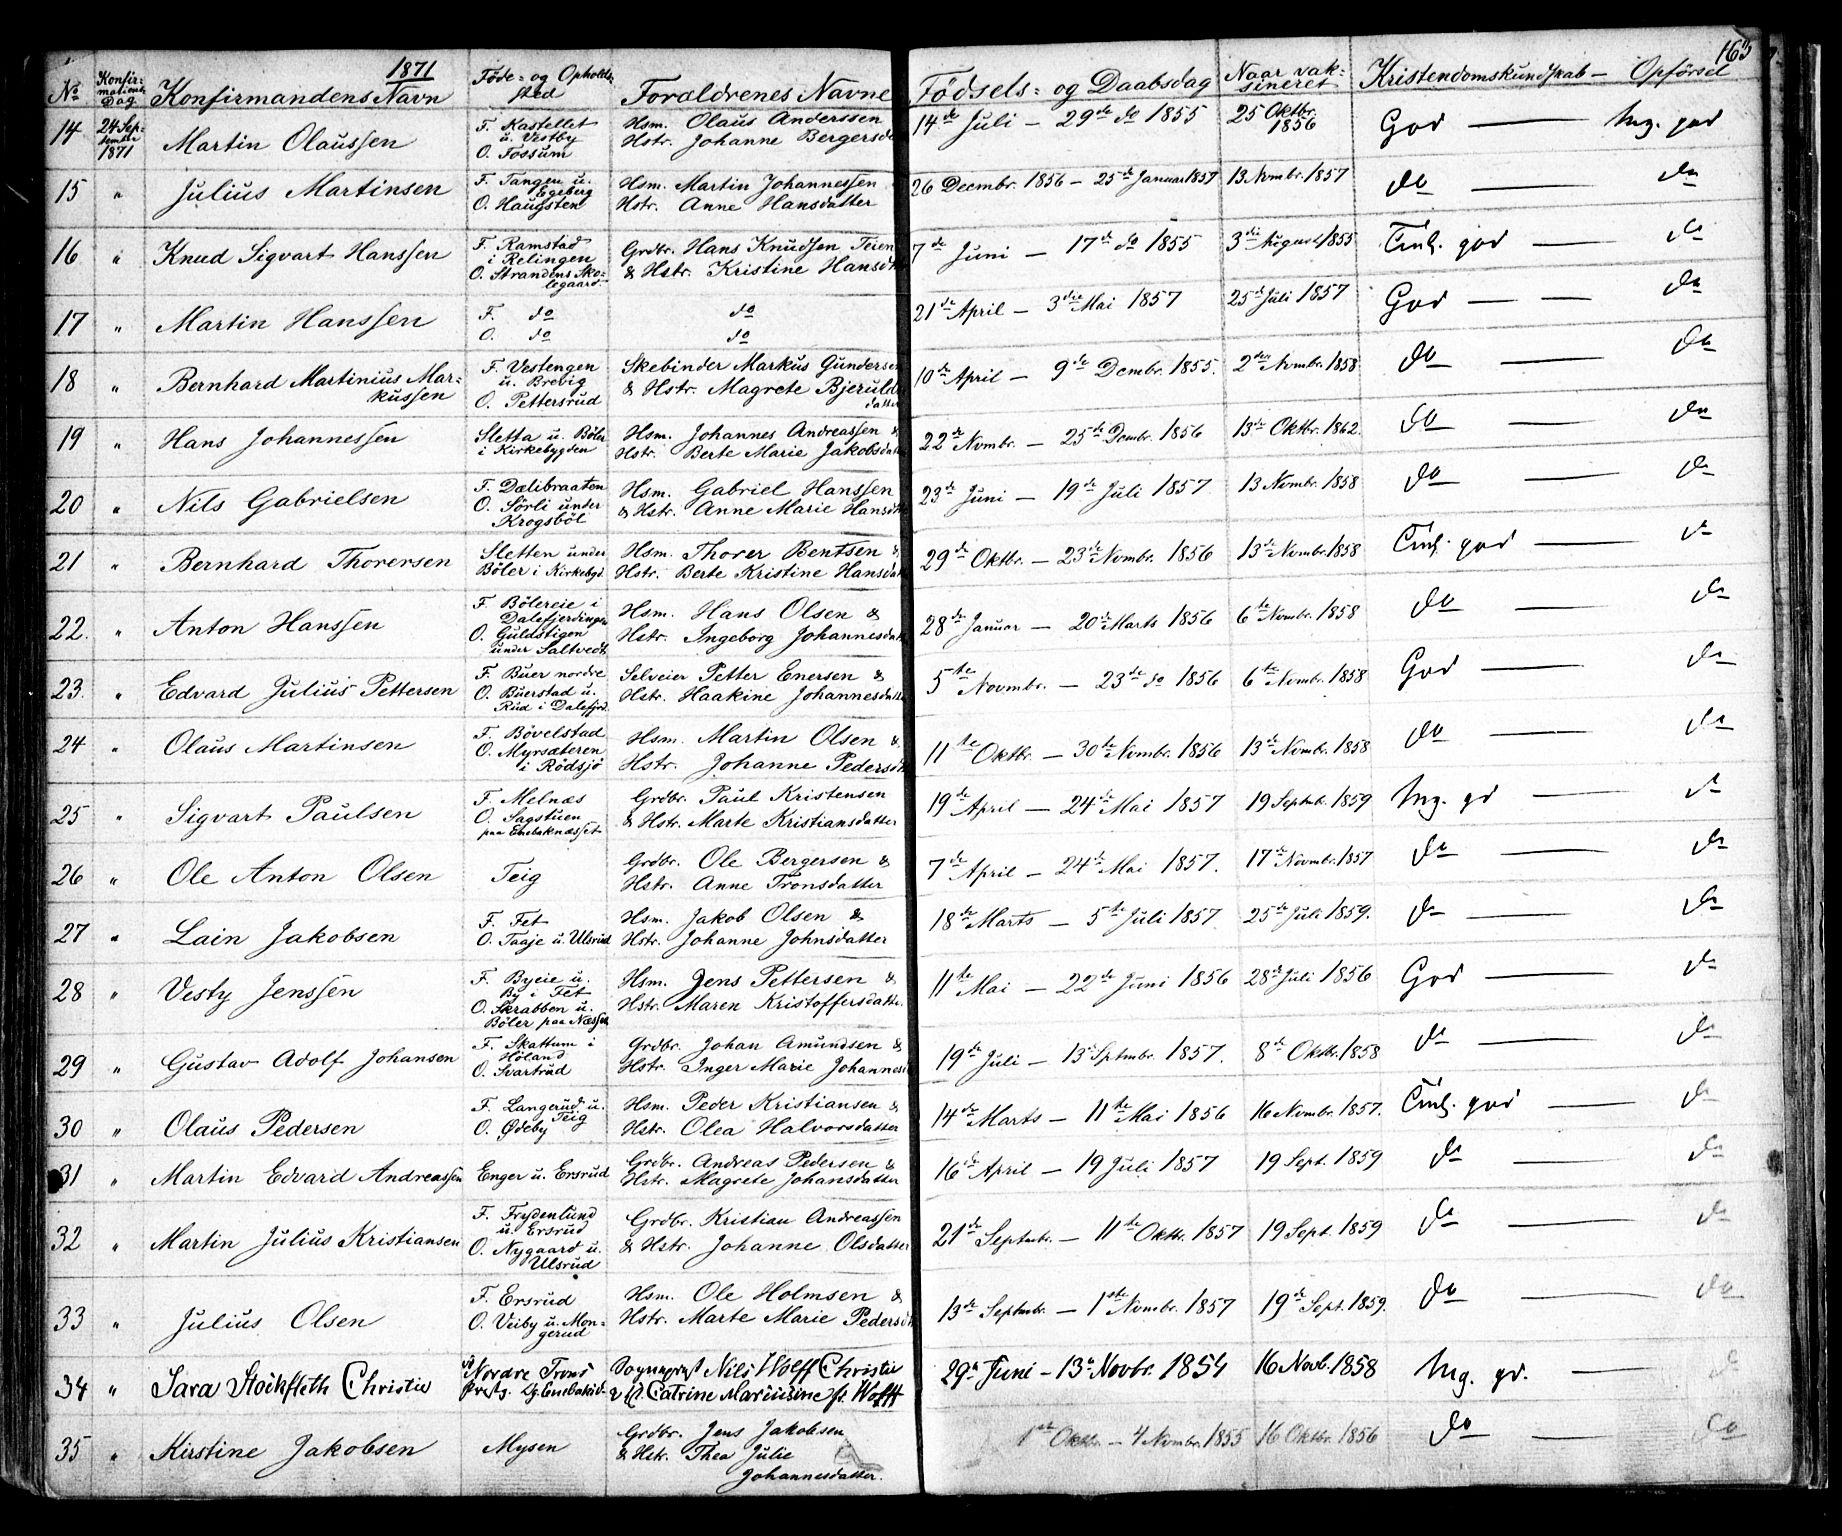 1871
163
No Konfirmations Dag Konfirmandens Navn Føde- og Opholdssted Forældrenes Navne Fødsels- og Daabsdag Naar vaksineret Kristendomskundskab — Opførsel
14 24 September 1871 Martin Olaussen F. Kastellet u. Vestby O. Fossum Hsm. Olaus Anderssen Hstr. Johanne Bergersd 14de Juli — 29de do 1855 25 Oktbr. 1856 God — Mg. god
15 " Julius Martinsen F. Tangen u. Egeberg O. Haugsten Hsm. Martin Johannessen Hstr. Anne Hansdatter 26 Decmbr. 1856 — 25de Januar 1857 13 Nvmbr. 1857 do — do
16 " Knud Sigvart Hanssen F. Ramstad i Relingen O. Strandens Skolegaard Grdbr. Hans Knudsen Teien & Hstr. Kristine Hansdtr 7de Juni — 17de do 1855 3die August 1855 Tml. god — do
17 " Martin Hanssen F. do O. do do do 21de April — 3die Mai 1857 25de Juli 1857 God — do
18 " Bernhard Martinius Markussen F. Vestengen u. Brevig O. Pettersrud Skebinder Markus Gundersen & Hstr. Magrete Bjeruldsdatter 10de April — 9de Decmbr. 1855. 2den Nvmbr. 1858 do — do
19 " Hans Johannessen Sletta u. Bøler i Kirkebygden Hsm. Johannes Andreassen & Hstr. Berte Marie Jakobsdatter 22de Nvmbr. — 25de Decmbr. 1856 13de Oktbr. 1862. do — do
20 " Nils Gabrielsen F. Dælibraaten O. Sørli under Krogsbøl Hsm. Gabriel Hanssen & Hstr. Anne Marie Hansdtr 23de Juni — 19de Juli 1857 13 Nvmbr. 1858 do — do
21 " Bernhard Thorersen Sletten under Bøler i Kirkebygd Hsm. Thorer Bentsen & Hstr. Berte Kristine Hansdatter 29de Oktbr. — 23de Nvmbr. 1856 13de Nvmbr. 1858 Tml. god — do
22. " Anton Hanssen F. Bølereie i Dalefjerdingen O. Guldstigen under Saltvedt Hsm. Hans Olsen & Hstr. Ingeborg Johannesdatter 28de Januar — 20de Marts 1856 6te Nvmbr. 1858 do — do
23. " Edvard Julius Pettersen F. Buer nordre O. Buerstad u. Rud i Dalefjrd. Selveier Petter Enersen & Hstr. Haakine Johannesdatter 5te Novmbr. — 23de do 1856 6te Nvmbr. 1858 God — do
24 " Olaus Martinsen F. Bøvelstad O. Myrsæteren i Rødsjø Hsm. Martin Olsen & Hstr. Johanne Pedersdtr 11te Oktbr. — 30te Nvmbr. 1856 13de Nvmbr. 1858 do — do
25 " Sigvart Paulsen F. Melnæs O. Sagstuen paa Enebaknæsset Grdbr. Paul Kristensen & Hstr. Marte Kristiansdatter 19de April — 24de Mai 1857 19 Septmb. 1859 Mg. gd — do
26 " Ole Anton Olsen Teig Grdbr. Ole Bergersen & Hstr. Anne Tronsdatter 7de April — 24de Mai 1857. 17de Novmbr. 1857 do — do
27 " Lain Jakobsen F. Fet O. Taaje u. Ulsrud Hsm. Jakob Olsen & Hstr. Johanne Johnsdatter 18de Marts — 5te Juli 1857. 25de Juli 1859. do — do
28 " Vesty Jenssen F. Byeie u. By i Fet O. Skrabben u. Bøler paa Næsset Hsm. Jens Pettersen & Hstr. Maren Kristoffersdatter 11te Mai — 22de Juni 1856 28de Juli 1856 God — do
29 " Gustav Adolf Johansen F. Skattum i Høland O. Svartrud Grdbr. Johan Amundsen & Hstr. Inger Marie Johannesd 19de Juli — 13de Sptmbr. 1857. 8de Oktbr. 1858 do — do
30 " Olaus Pedersen F. Langerud u. Teig O. Ødeby Hsm. Peder Kristiansen & Hstr. Olea Halvorsdatter 14de Marts — 11te Mai 1856 16 Nvmbr. 1857. Tml. god — do
31 " Martin Edvard Andreassen Enger u. Ersrud Grdbr. Andreas Pedersen & Hstr. Magrete Johansdatter 16de April — 19 Juli 1857 19 Sept. 1859 do — do
32 " Martin Julius Kristiansen F. Frydenlund u. Ersrud O. Nygaard u. Ulsrud Grdbr. Kristian Andreassen & Hstr. Johanne Olsdatter 21de Septmbr. — 11te Oktbr. 1857 19 Sept. 1859 do — do
33 " Julius Olsen F. Ersrud O. Veiby u. Mongerud Hsm. Ole Holmsen & Hstr. Marte Marie Pedersdtr 13de Septmbr. — 1ste Nvmbr. 1857 19de Sept. 1859. do — do
34 " Sara Stockfleth Christie Nordre Trons Prestg. Enebak Sogneprest Nils Wolff Christie & Catrine Marcusine f. Wolff 29n Juni — 13n Novbr. 1854 16 Novb. 1858 Mg. gd. — do
35 " Kirstine Jakobsen Mysen Grdbr. Jens Jakobsen & Hstr. Thea Julie Johannesdatter. 1ste Oktbr. — 4 Nvmbr. 1855 16 Oktbr. 1856 do — do